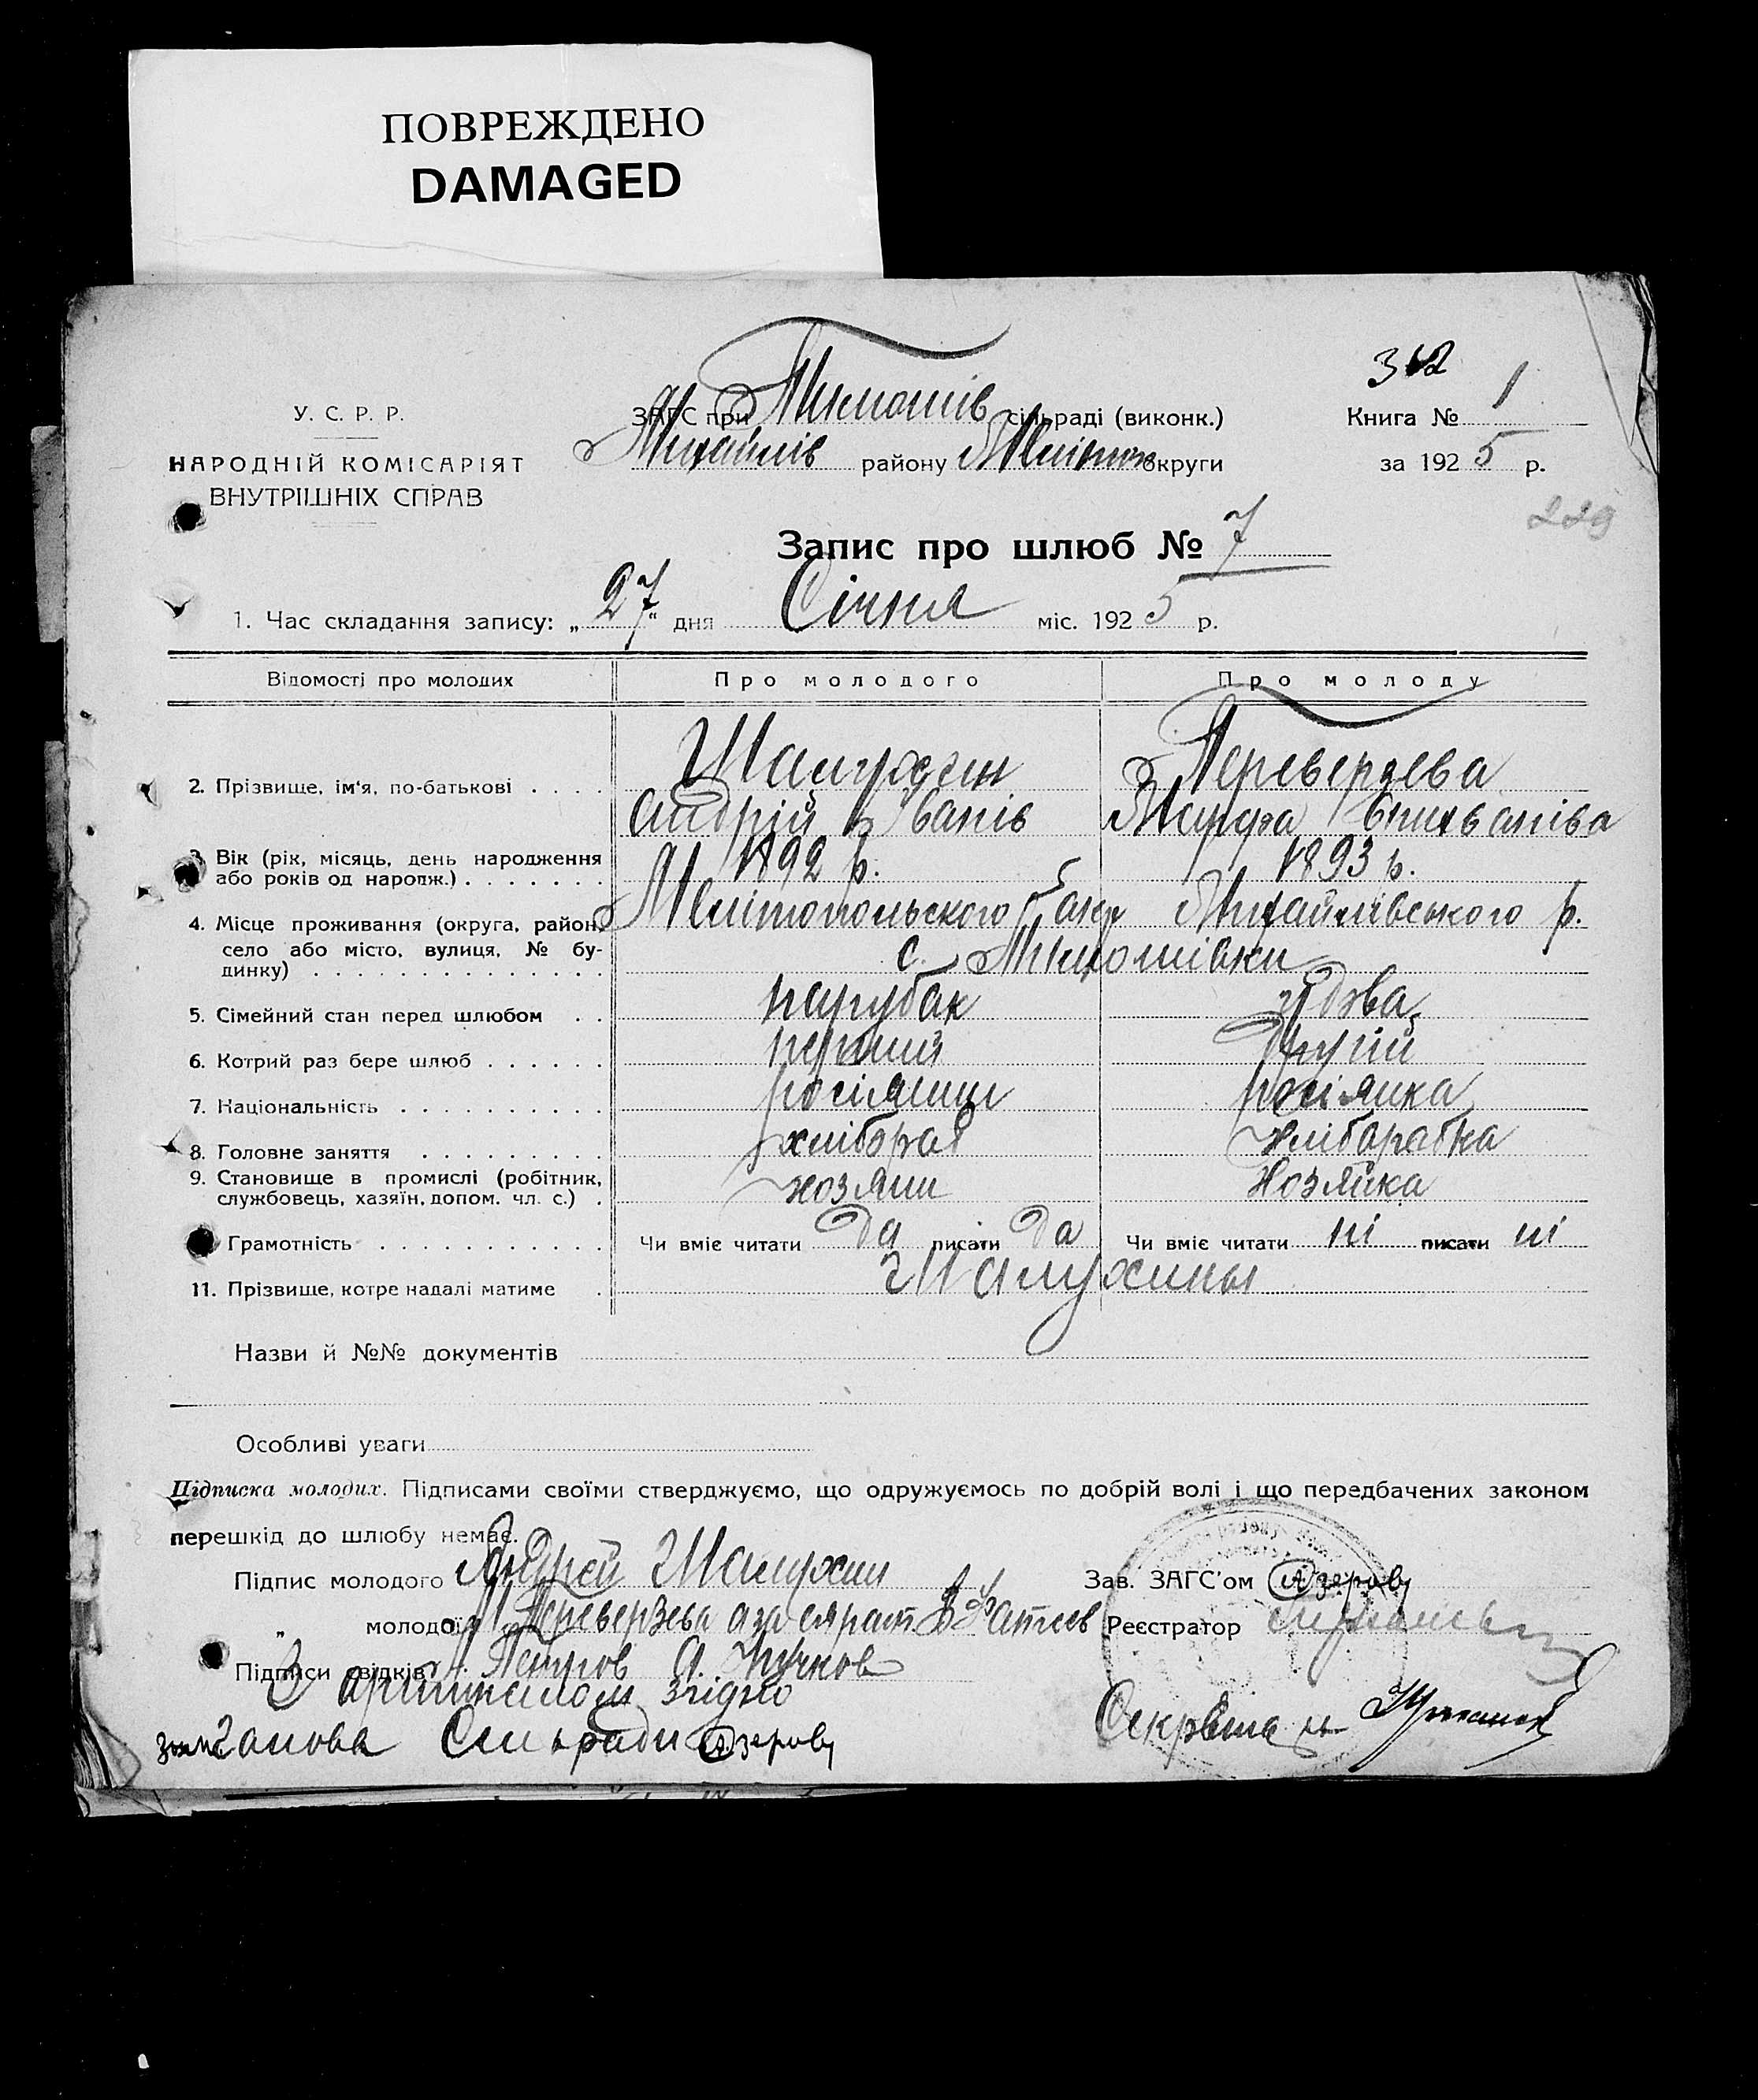 ПОВРЕЖДЕНО
DAMAGED
У. С. Р. Р.
НАРОДНІЙ КОМІСАРІЯТ
ВНУТРІШНІХ СПРАВ
ЗАГС при Тимошів сільраді (виконк.)
Михайлів району Мліто округи
Книга № 1
за 1925 р.
229
Запис про шлюб № 7
1. Час складання запису: „27“ дня Січня міс. 1925 р.
Відомості про молодих Про молодого Про молоду
2. Прізвище, ім'я, по-батькові . . . . Шамухин Переверзева
Андрій Іванів Марфа
3. Вік (рік, місяць, день народження
або років од народж.) . . . . . . . 1892 р. 1893 р.
4. Місце проживання (округа, район,
село або місто, вулиця, № бу-
динку) . . . . . . . . . . . . . . Мелітопольского Михайлівського р.
с. Тимошівки
5. Сімейний стан перед шлюбом . . парубак удова
6. Котрий раз бере шлюб . . . . . . перший другий
7. Національність . . . . . . . . . . росіянин росіянка
8. Головне заняття . . . . . . . . . хлібораб хліборабка
9. Становище в промислі (робітник,
службовець, хазяїн, допом. чл. с.) . хозяин хозяйка
Грамотність . . . . . . . . . . . Чи вміє читати да писати да Чи вміє читати ні писати ні
11. Прізвище, котре надалі матиме . Шамухины
Назви й №№ документів
Особливі уваги
Підписка молодих. Підписами своїми стверджуємо, що одружуємось по добрій волі і що передбачених законом
перешкід до шлюбу немає.
Підпис молодого Андрей Шамухин
Зав. ЗАГС'ом Азеров
„ молодої Переверзева а за ея
Реєстратор
Підписи свідків Петров А.
З оригиналом згідно
Голова Сильради Азеров
Секретарь